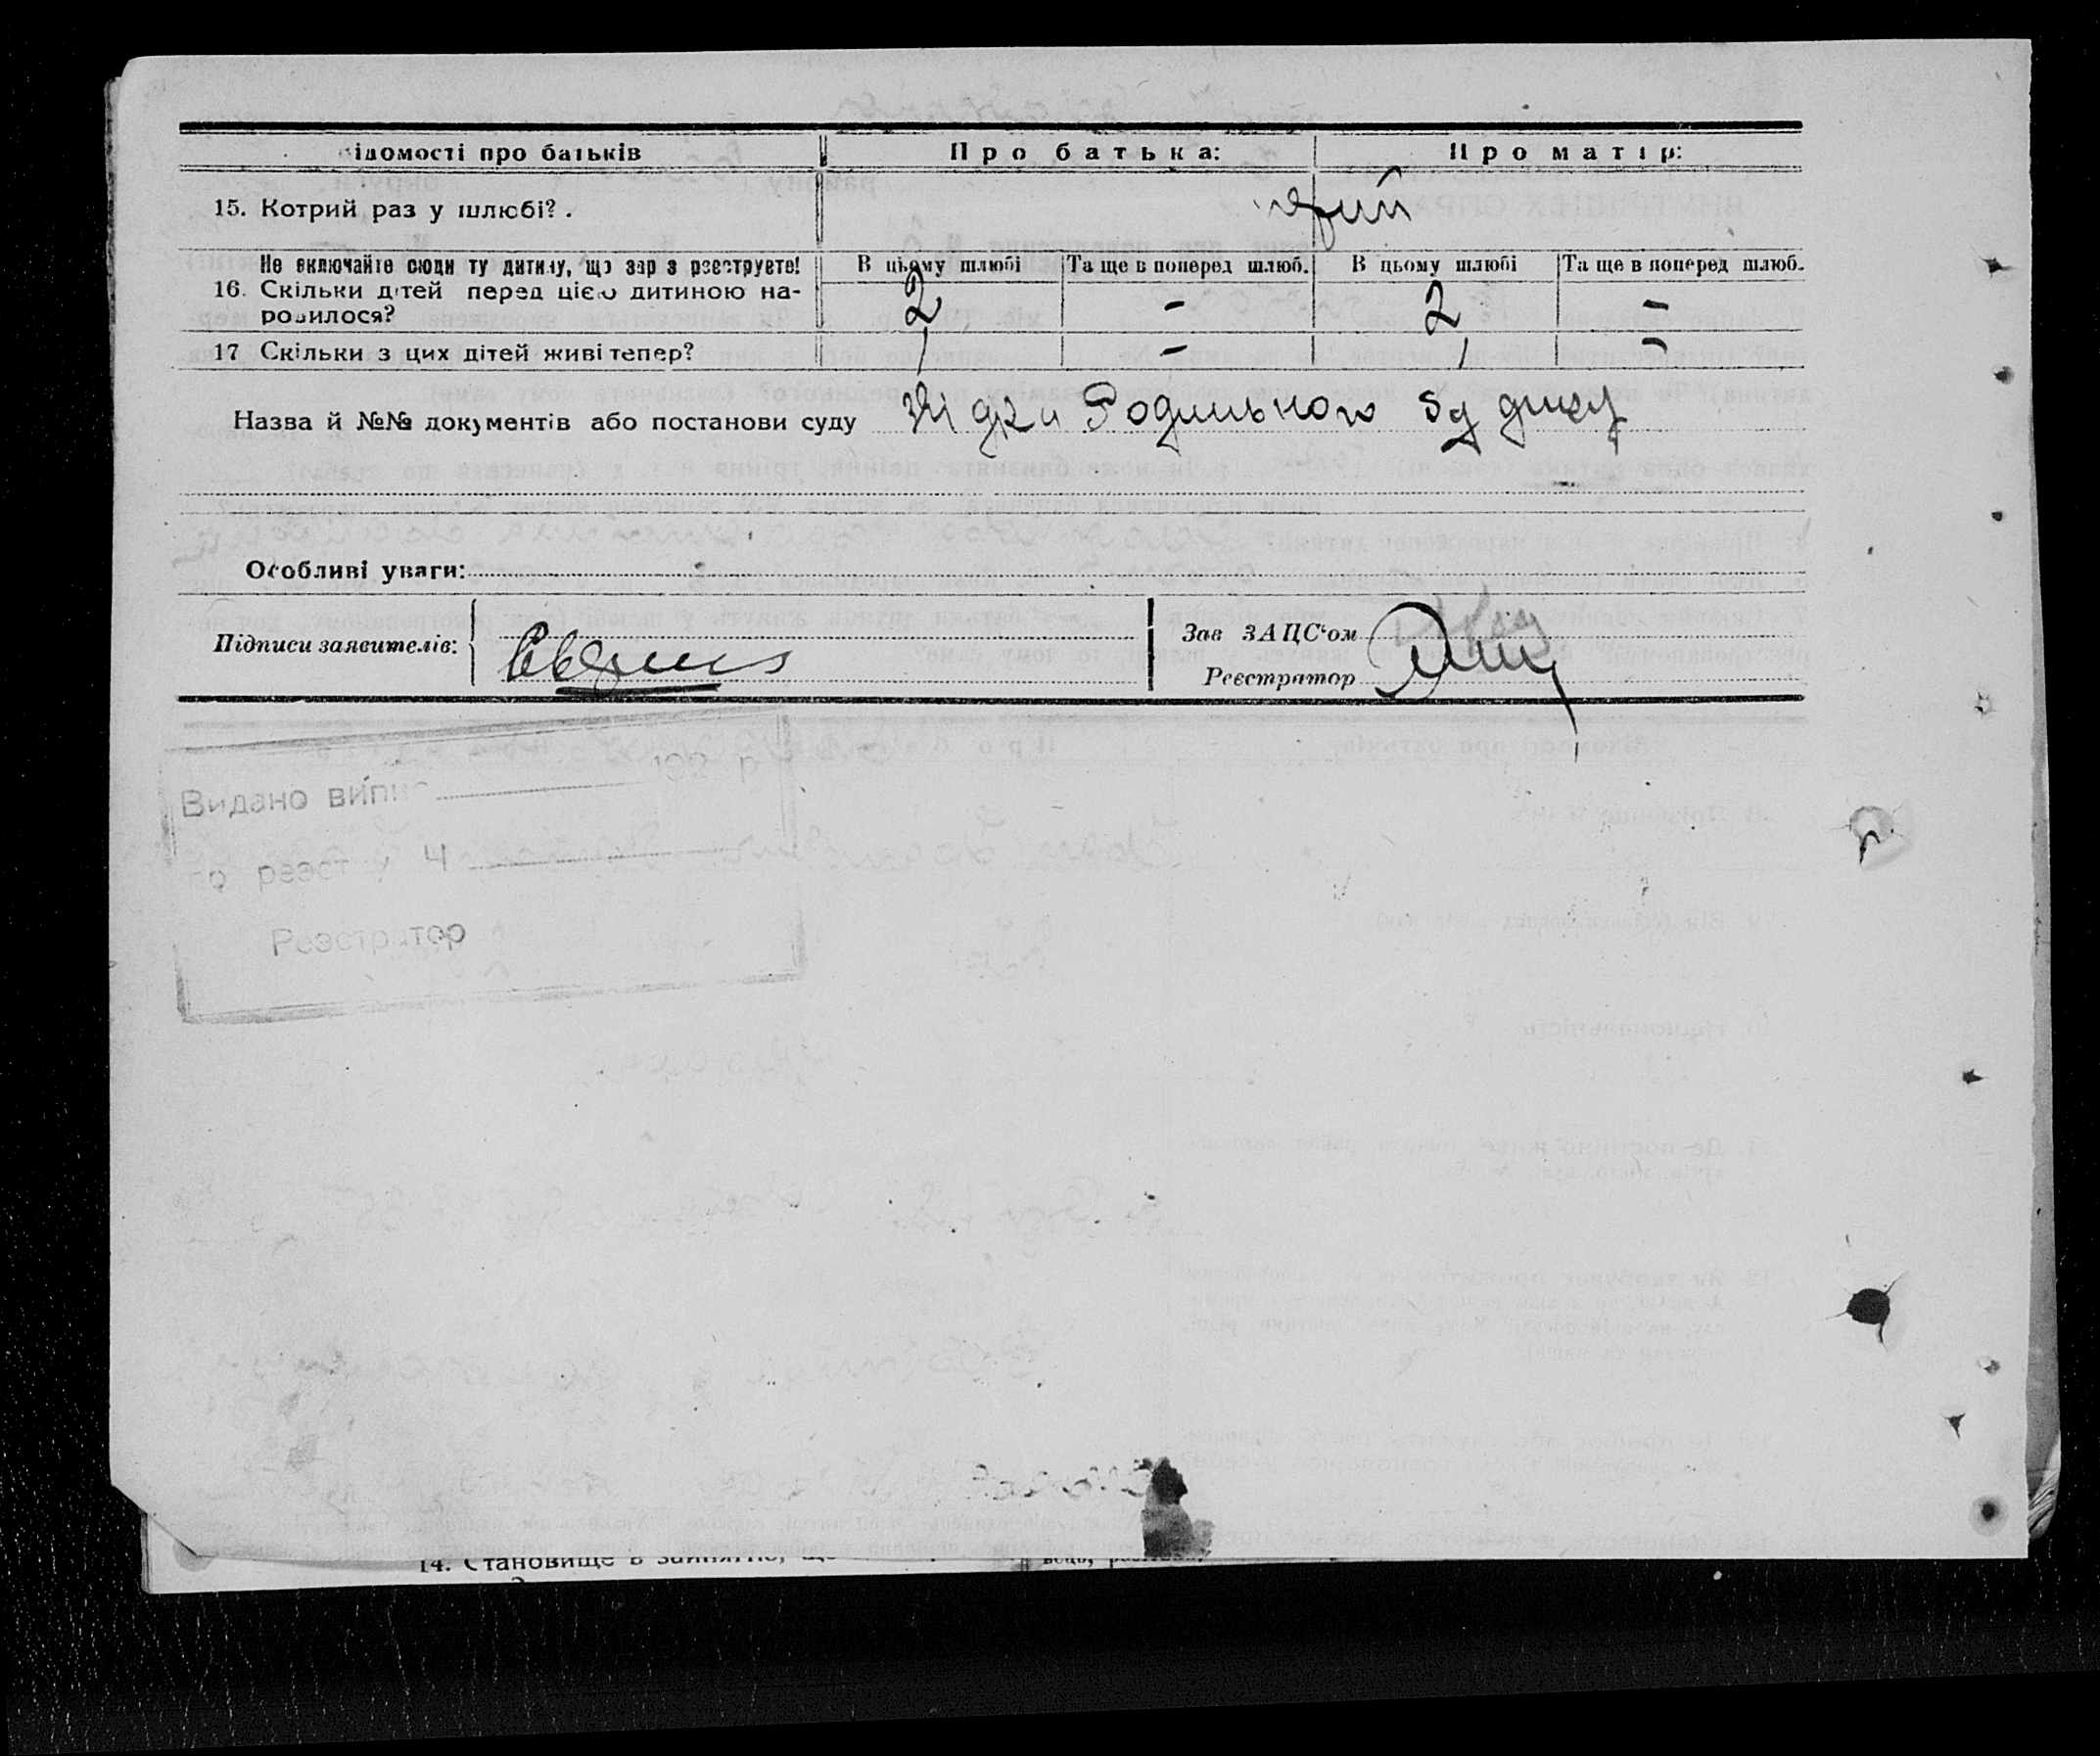 ідомості про батьків Про батька: Про матір:
15. Котрий раз у шлюбі?.
Не включайте сюди ту дитину, що зар з реєструєте! В цьому шлюбі Та ще в поперед шлюб. В цьому шлюбі Та ще в поперед шлюб.
16. Скільки дітей перед цією дитиною на- 2 - 2 -
родилося?
17 Скільки з цих дітей живі тепер? 1 - 1 -
Назва й №№ документів або постанови суду Родильного
Особливі уваги:
Підписи заявителів: Зав ЗАЦС'ом
Реєстратор
Видано випис 192 р
по реєст у Ч
Реєстратор
14. Становище в занятію, що